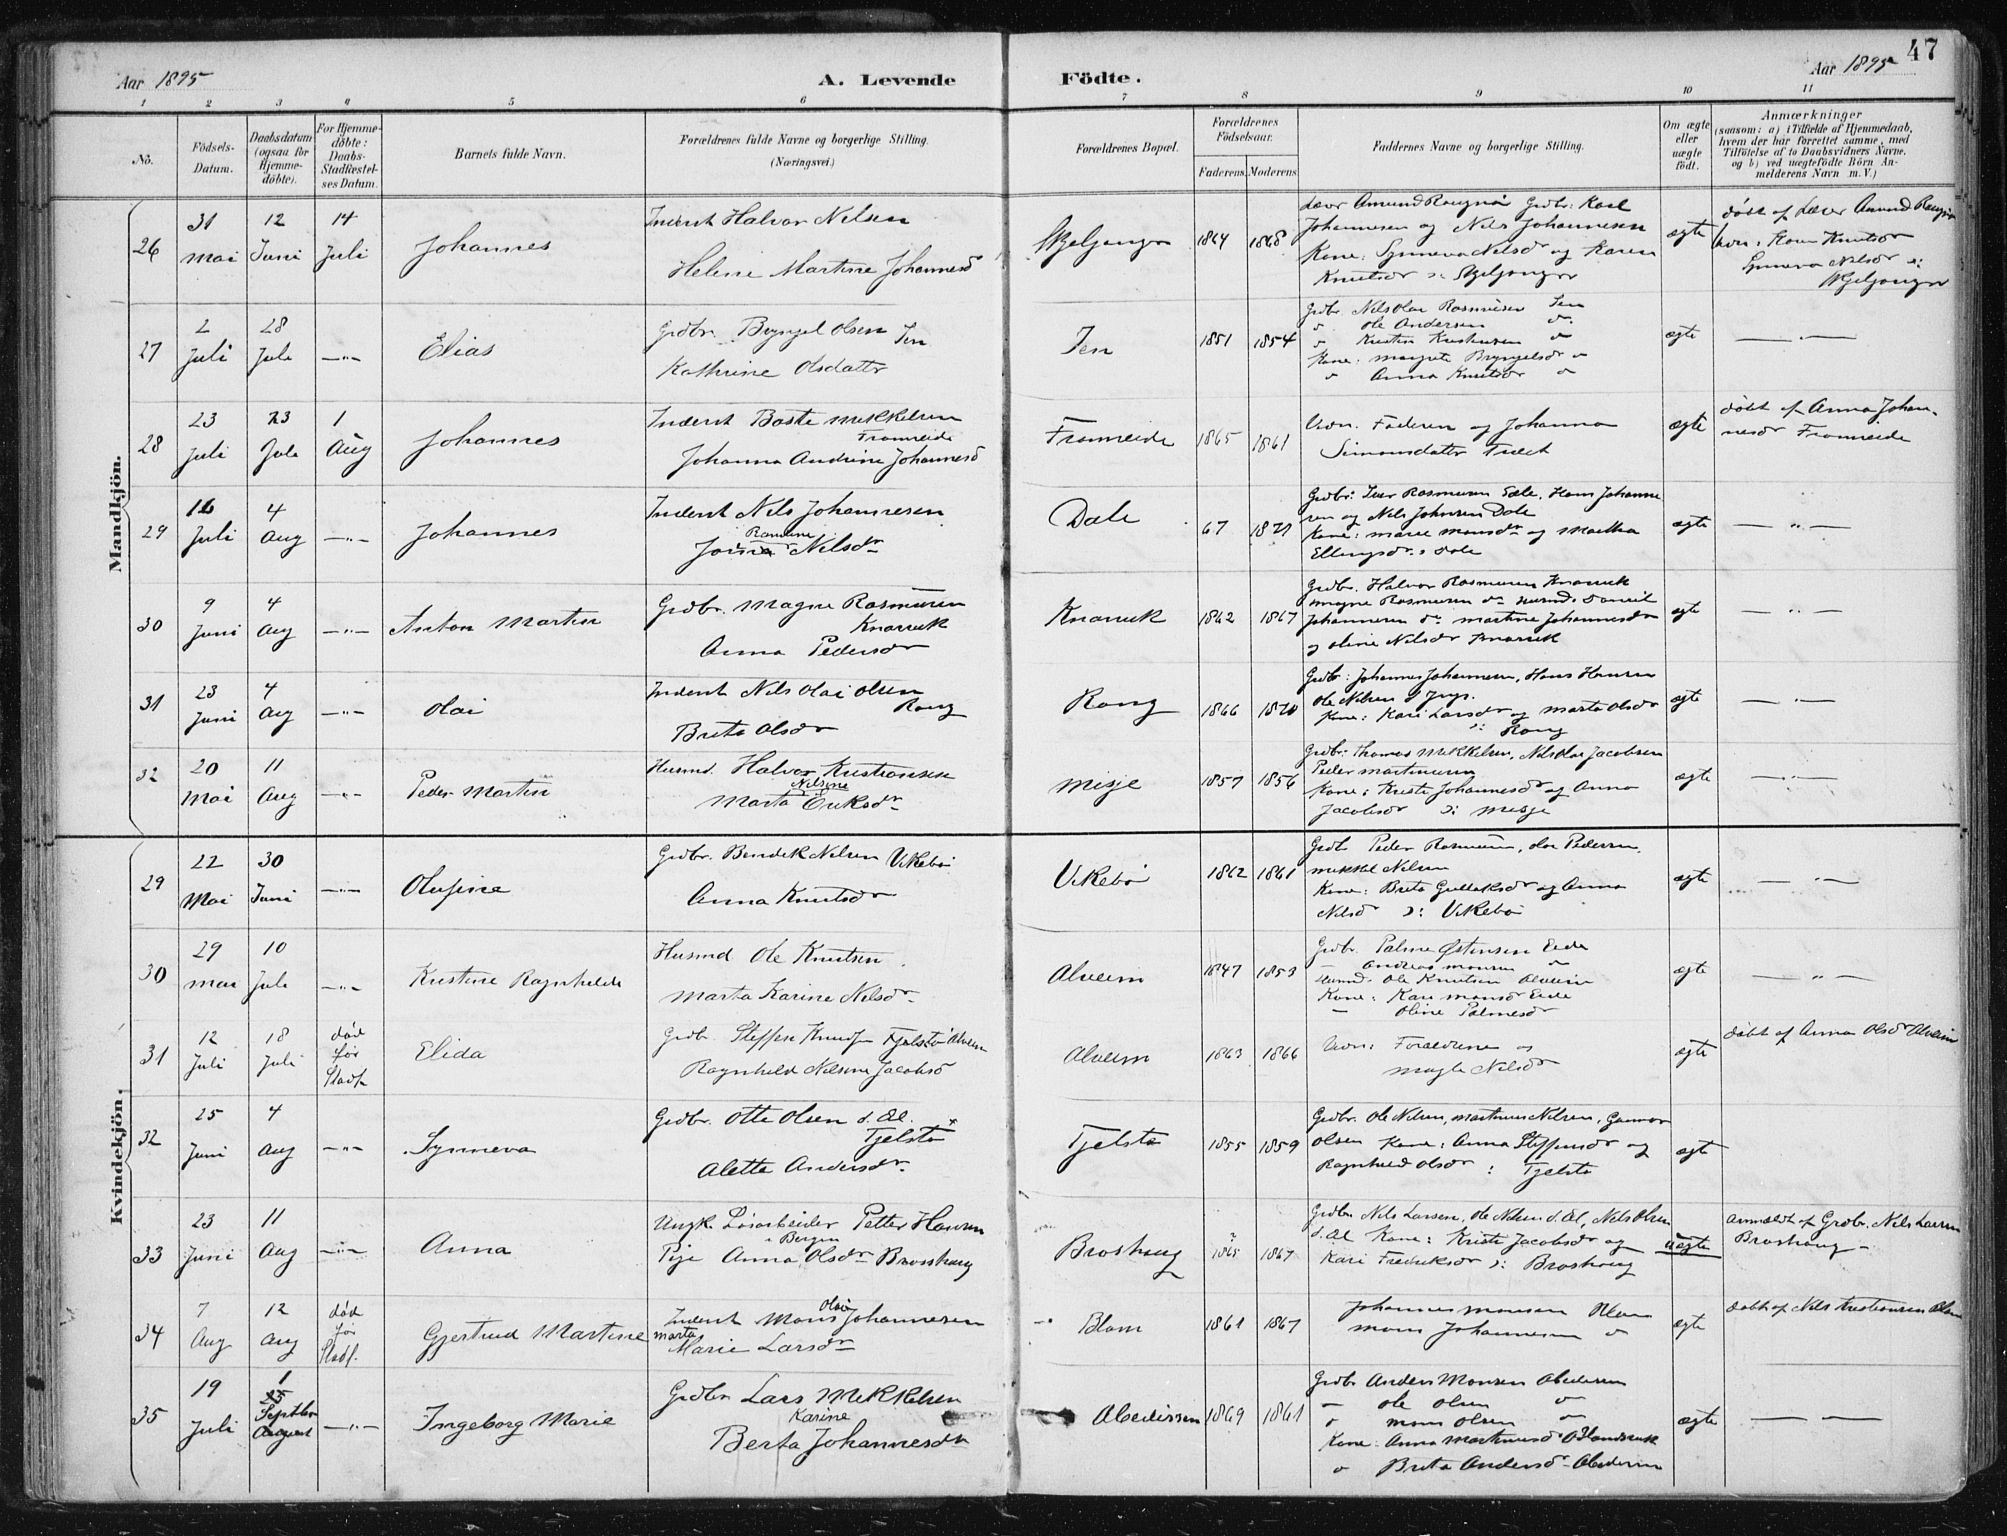 Aar 1895
A. Levende
Födte.
Aar 1895
47
1 2 3 4 5 6 7 8 9 10 11
No.
Födsels-
Datum.
Daabsdatum
(ogsaa for
Hjemme-
döbte).
For Hjemme-
döbte:
Daabs-
Stadfæstel-
ses Datum.
Barnets fulde Navn.
Forældrenes fulde Navne og borgerlige Stilling.
(Næringsvei.)
Forældrenes Bopæl.
Forældrenes
Födselsaar.
Faderens. Moderens.
Faddernes Navne og borgerlige Stilling.
Om ægte
eller
uægte
födt.
Anmærkninger
(saasom: a) i Tilfælde af Hjemmedaab,
hvem der har forrettet samme, med
Tilföielse af to Daabsvidners Navne.
og b) ved uægtefödte Börn An-
melderens Navn m. V.)
Mandkjön.
26
31 Mai
12 Juni
14 Juli
Johannes
Inderst Halvor Nilsen
Helene Martine Johannesd
Skjeljanger
1864 1868
Lærer Amund Rongnø Grdbr: Karl
Johannesen og Nils Johannesen
Kone: Synneva Nilsd og Karen
Knutsdr : Skjeljanger
ægte
döbt af Lærer Amund Rongnø
Kone Knutsdr
Synneva Nilsdr :
Skjeljanger
27
2 Juli
28 Juli
—"—
Elias
Grdbr. Bryngel Olsen Ien
Kathrine Olsdatter
Ien
1851 1854
Grdbr. Nils Olai Rasmusen Ien
" Ole Andersen "
" Kristen Kristensen "
Kone: Margrete Bryngelsdr "
" Anna Knutsdr "
ægte
—"—
28
23 Juli
23 Juli
1 Aug
Johannes
Inderst Baste Mikkelsen
Fromreide
Johanna Andrine Johannesd
Fromreide
1865 1861
Vidn. Faderen og Johanna
Simonsdatter
ægte
döbt af Anna Johan-
nesdr Fromreide
29
16 Juli
4 Aug
—"—
Johannes
Inderst Nils Johannesen
Rasmine
Nilsdr
Dale
67 1871
Grdbr: Iver Rasmusen Dale, Hans Johanne
sen og Nils Johnsen Dale
Kone: Marie Monsdr og Martha
Ellingsdr : Dale
ægte
—"—
30
9 Juni
4 Aug
—"—
Anton Martin
Grdbr. Magne Rasmusen
Knarrvik
Anna Pedersdr
Knarrvik
1862 1867
Grdbr. Halvor Rasmusen Knarrvik
Magne Rasmusen do Daniel
Johannesen do Martine Johannesdr
og Oline Nilsdr Knarrvik
ægte
—"—
31
23 Juni
4 Aug
—"—
Olai
Inderst Nils Olai Olsen
Rong
Brita Olsdr
Rong
1866 1870
Grdbr: Johannes Johannesen, Hans Hansen
Ole Nilsen d Yngr.
Kone: Kari Larsdr og Marta Olsdr
: Rong
ægte
—"—
32
20 Mai
11 Aug
—"—
Peder Martin
Husmd. Halvor Kristiansen
Nilsine
Marta Eriksdr
Misje
1857 1856
Grdbr: Thomas Mikkelsen, Nils Olai Jacobsen
Peder Martinusen
Kone: Kristi Johannesdr og Anna
Jacobsdr : Misje
ægte
—"—
Kvindekjön.
29
22 Mai
30 Juni
—"—
Olufine
Grdbr. Bendik Nilsen Vikebø
Anna Knutsdr
Vikebø
1862 1861
Grdb Peder Rasmusen, Ole Pedersen,
Mikkel Nilsen
Kone: Brita Gullaksdr og Anna
Nilsd : Vikebø
ægte
—"—
30
29 Mai
10 Juli
—"—
Kristine Ragnhilda
Husmd Ole Knutsen
Marta Karine Nilsdr
Alveim
1847 1853
Grdbr. Palme Østensen Eide
— Andreas Monsen "
Husmd. Ole Knutsen Alveim
Kone: Kari Monsdr Eide
— Oline Palmesdr
ægte
—"—
31
12 Juli
18 Juli
död
før
Stadf.
Elida
Grdbr. Steffen Knudsen Tjeldstø Alveim
Ragnhild Nilsine Jacobsd
Alveim
1863 1866
Vidn: Forældrene og
Magla Nilsdr
ægte
döbt af Anna Olsdr Alveim
32
25 Juni
4 Aug
—"—
Synneva
Grdbr. Otte Olsen d. Æl.
Tjelstø
Alette Andersdr.
Tjelstø
1855 1859
Grdbr. Ole Nilsen, Martinus Nilsen, Gunnar
Olsen Kone: Anna Steffensdr og
Ragnhild Olsdr : Tjelstø
ægte
33
23 Juni
11 Aug
—"—
Anna
Ungk. Løsarbeider Petter Hansen
Bergen
Pige Anna Olsdr Brosshaug
Broshaug
1865 1867
Grdbr. Nils Larsen, Ole Nilsen d. Æl, Nils Olsen
d. Æl Kone: Kristi Jacobsdr og
Kari Fredriksdr : Broshaug
uægte
anmeldt af Grdbr. Nils Larsen
Broshaug
34
7 Aug
12 Aug
död
før
Stadf.
Gjertrud Martine
Inderst Mons Olai Johannesen
Marta
Marie Larsdr
Blom
1861 1867
Johannes Monsen Blom
Mons Johannesen "
ægte
döbt af Nils Kristiansen Blom
35
19 Juli
1
25
Septbr
August
—"—
Ingeborg Marie
Grdbr Lars Mikkelsen
Karine
Berta Johannesdr
Alvedissen
1869 1861
Grdbr Anders Monsen Abedissen
— Ole Olsen "
" Mons Olsen "
Kone: Anna Martinusd
" Brita Andersd Abedissen
ægte
— —